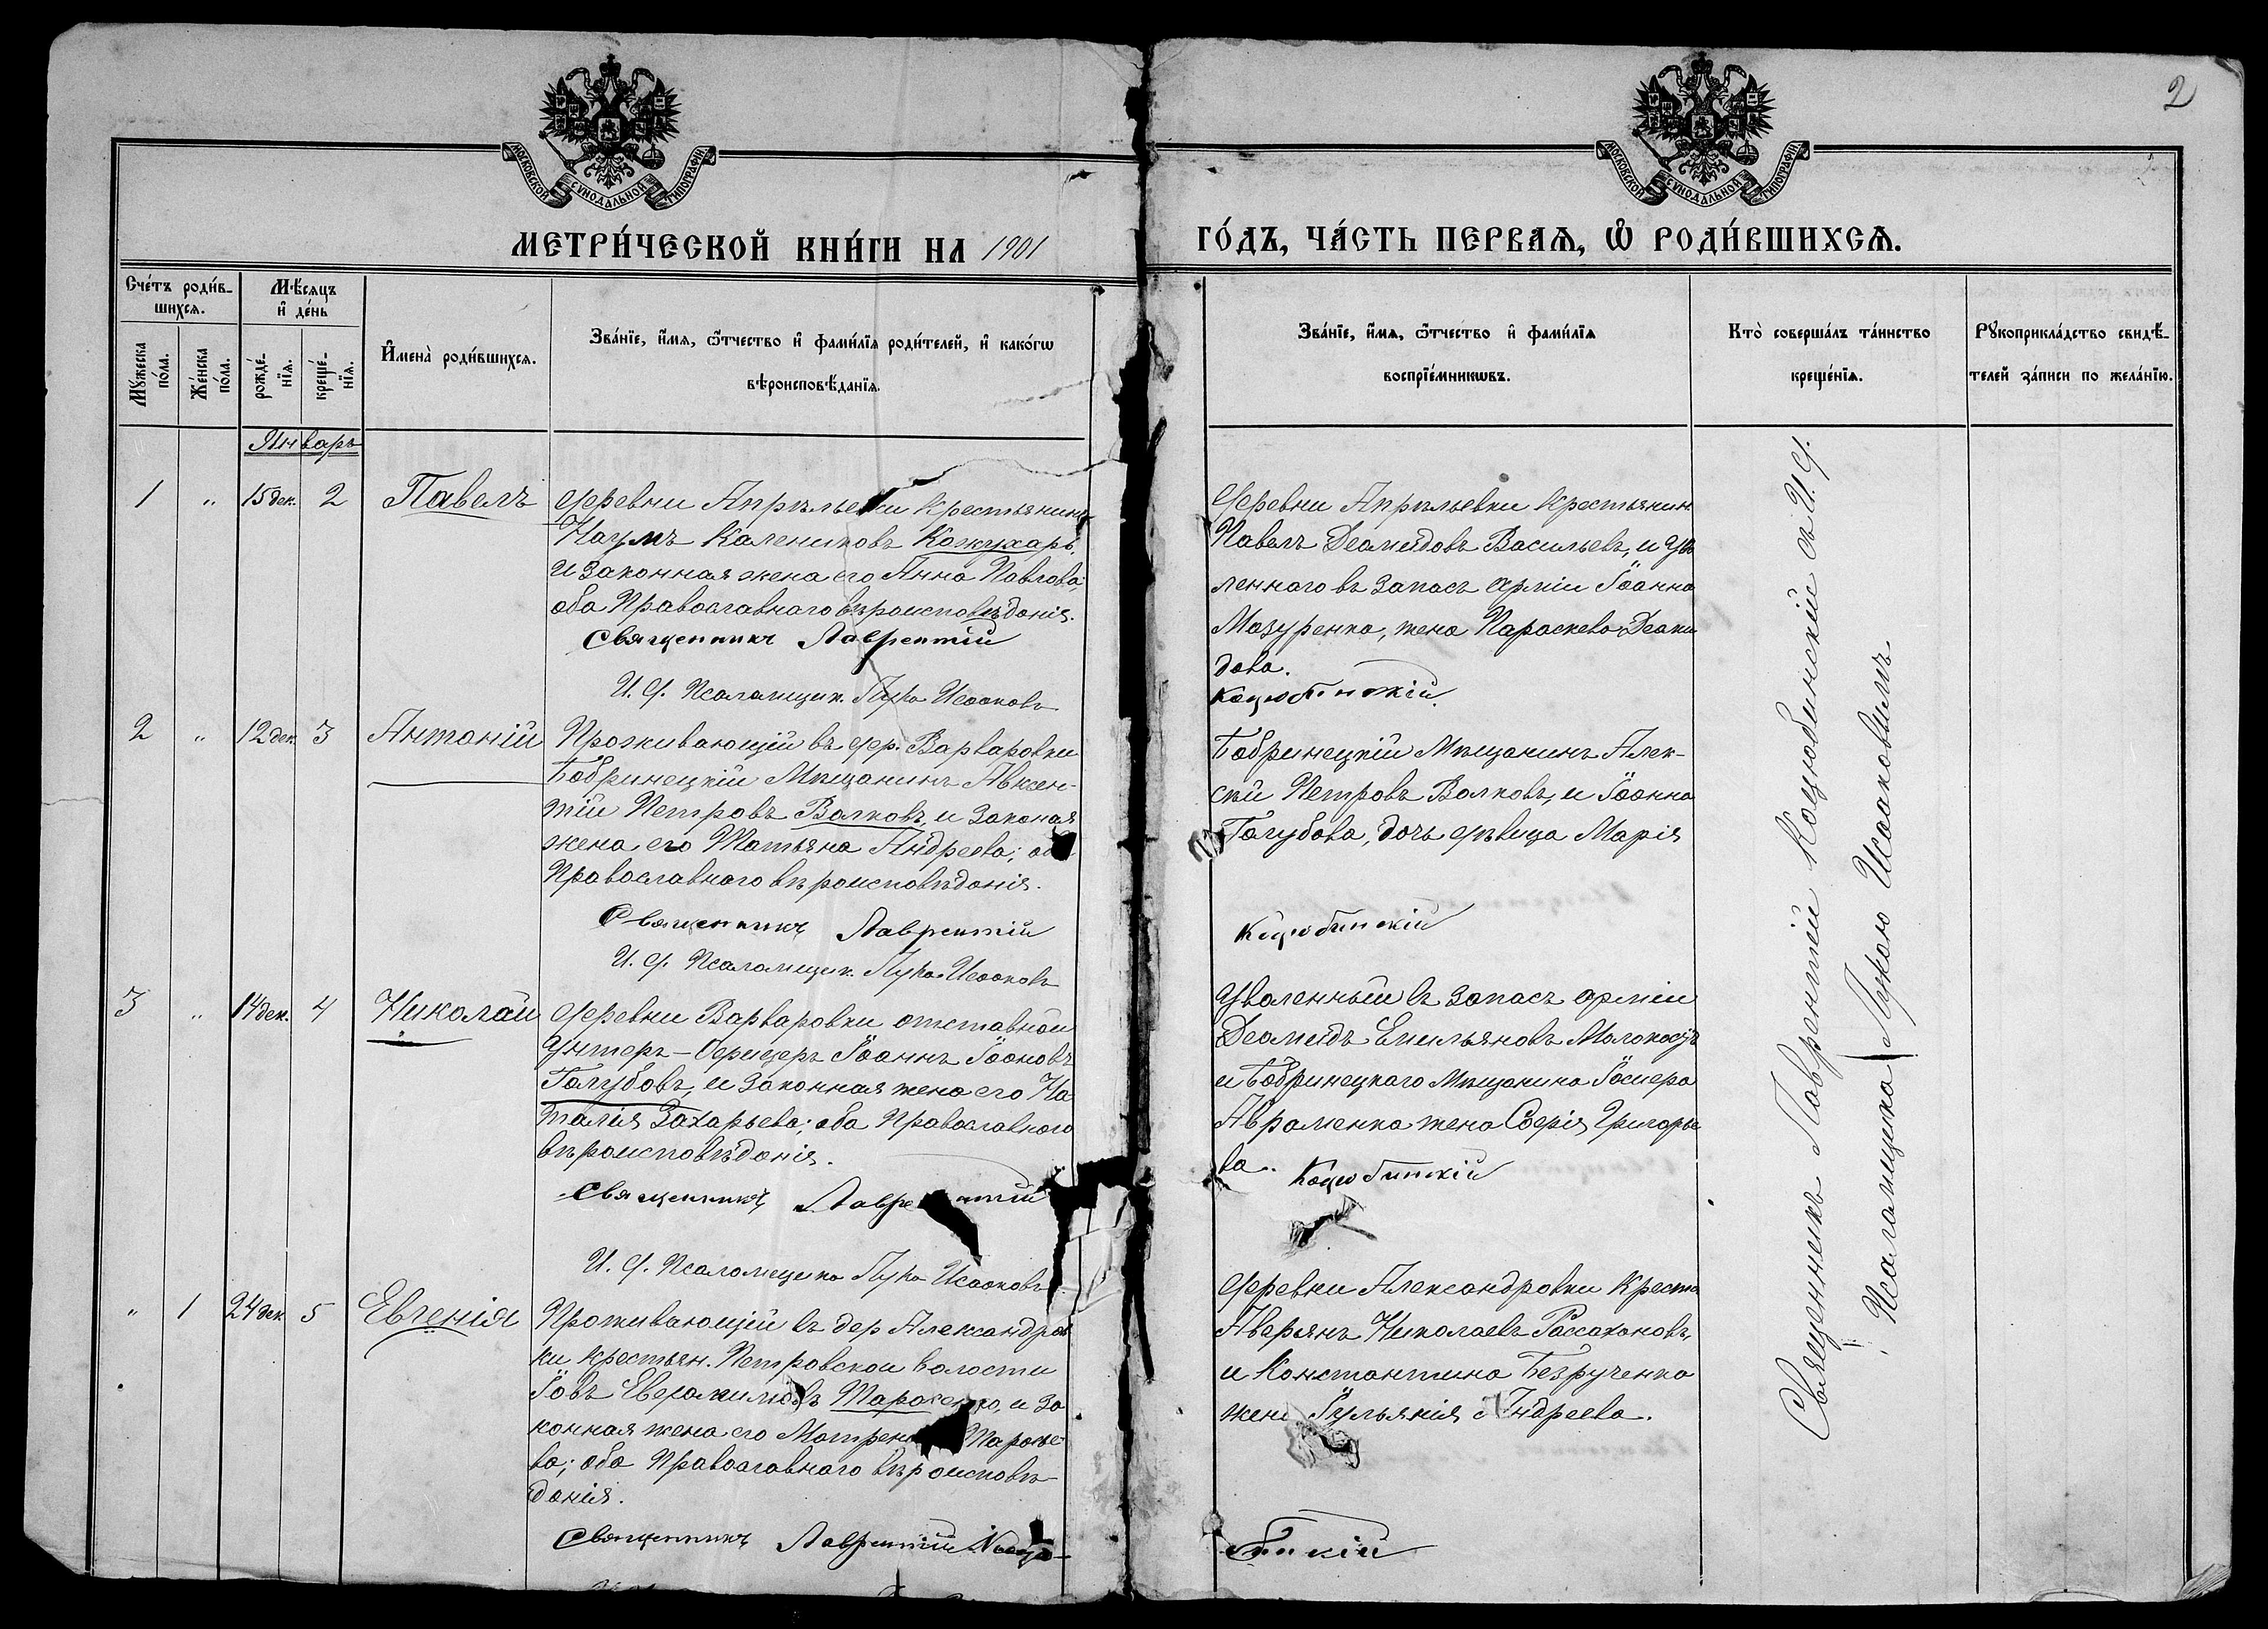 2
МОСКОВСКОЙ СѴНОДАЛЬНОЙ ТИПОГРАФІИ
МОСКОВСКОЙ СѴНОДАЛЬНОЙ ТИПОГРАФІИ
МЕТРИ́ЧЕСКОЙ КНИ́ГИ НА 1901
ГО́ДЪ, ЧА́СТЬ ПЕРВАѦ, Ѽ РОДИ́ВШИХСѦ.
Сче́тъ роди́в-
шихсѧ.
Мѣ́сѧцъ
и҆ де́нь
Мꙋ́жеска
по́ла.
Же́нска
по́ла.
рожде́-
нїѧ.
креще́-
нїѧ.
И҆мена̀ роди́вшихсѧ.
Зва́нїе, и҆́мѧ, ѻ҆́тчество и҆ фами́лїѧ роди́телей, и҆ како́гѡ
вѣроисповѣ́данїѧ.
Зва́нїе, и҆́мѧ, ѻ҆́тчество и҆ фами́лїѧ
воспрїе́мникѡвъ.
Кто̀ соверша́лъ та́инство
креще́нїѧ.
Рꙋкоприкла́дство свидѣ́-
телей за́писи по жела́нїю.
Январь
1 " 15 дек. 2 Павелъ
Деревни Апрѣльевки крестьянинъ
Наумъ Калениковъ Кожухарь,
и законная жена его Анна Павлова;
оба Православнаго вѣроисповѣданія.
Священникъ Лаврентій
И. д. Псаломщик. Лука Исааковъ
Деревни Апрѣльевки крестьянин
Павелъ Деомидовъ Васильевъ, и ув
леннаго въ запасъ арміи Іоанна
Мазуренка, жена Параскева Деоми
дова.
Коцюбинскій.
2 " 12 дек. 3 Антоній
Проживающій въ дер. Варваровки
Бобринецкій Мѣщанинъ Авксен-
тій Петровъ Волковъ, и законая
жена его Татьяна Андреева; оба
Православнаго вѣроисповѣданія.
Священникъ Лаврентій
И. д. Псаломщик. Лука Исааковъ
Бобринецкій Мѣщанинъ Алек-
сѣй Петровъ Волковъ, и Іоанна
Голубова, дочь дѣвица Марія
Коцюбинскій
3 " 14 дек. 4 Николай
Деревни Варваровки отставной
Унтеръ-Офицеръ Іоаннъ Іоановъ
Голубовъ, и законная жена его На
талія Захарьева; оба Православнаго
вѣроисповѣданія.
Священникъ Лаврентій
И. д. Псаломщика Лука Исааковъ.
Уволенный въ запасъ арміи
Деомидъ Емильяновъ
и Бобринецкаго Мѣщанина Іосифа
Авраменка жена Софія Григорье
ва.
Коцюбинскій
" 1 24 дек 5 Евгенія
Проживающій въ дер Александров
ки крестьян. Петровской волости
Іовъ Тарасенко, и за
конная жена его Матрена
ва; оба Православнаго вѣроисповѣ-
данія.
Священникъ Лаврентій Коцю-
Деревни Александровки Крестъ
Аверьянъ Николаевъ
и Константина Безрученка
жена Іульянія Андреева.
бинскій
Священникъ Лаврентій Коцюбинскій съ И. д.
Псаломщика Лукою Исааковымъ